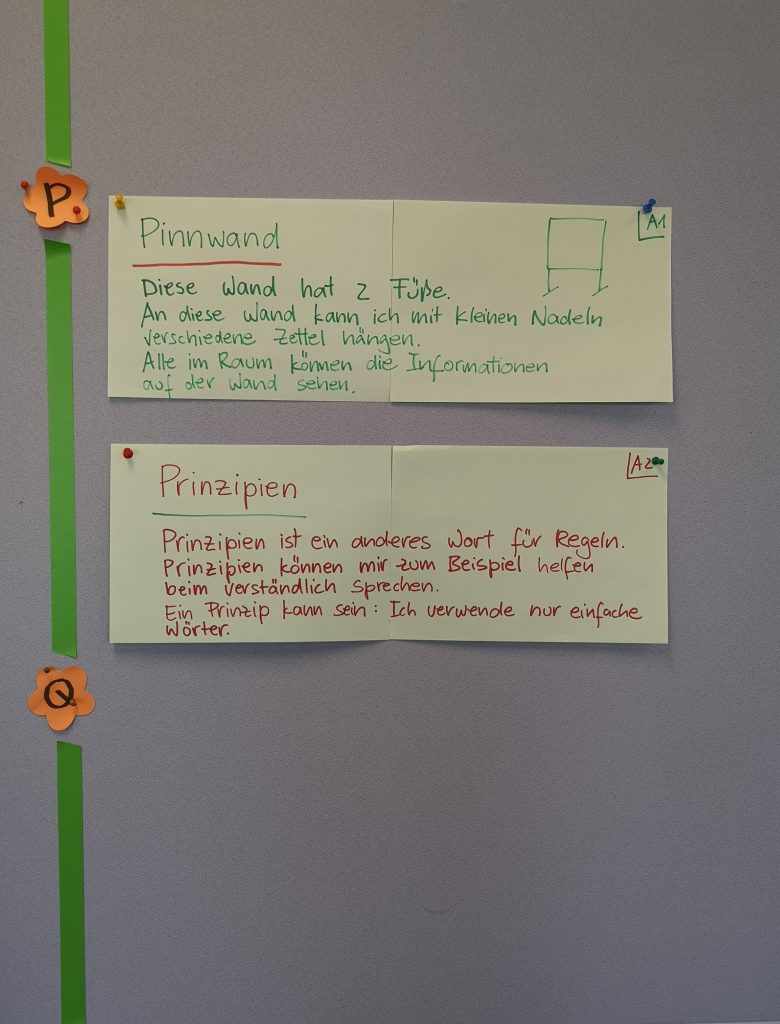 P
Pinnwand
A1
Diese Wand hat 2 Füße.
An diese Wand kann ich mit kleinen Nadeln
verschiedene Zettel hängen.
Alle im Raum können die Informationen
auf der Wand sehen.
Prinzipien
A2
Prinzipien ist ein anderes Wort für Regeln.
Prinzipien können mir zum Beispiel helfen
beim verständlich sprechen.
Ein Prinzip kann sein: Ich verwende nur einfache
Wörter.
Q